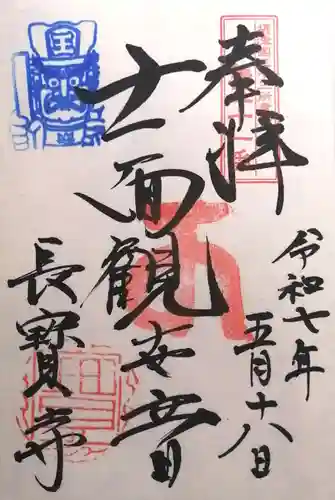 奉拝
令和七年
五月十八日
十一面観世音
長寳寺
国